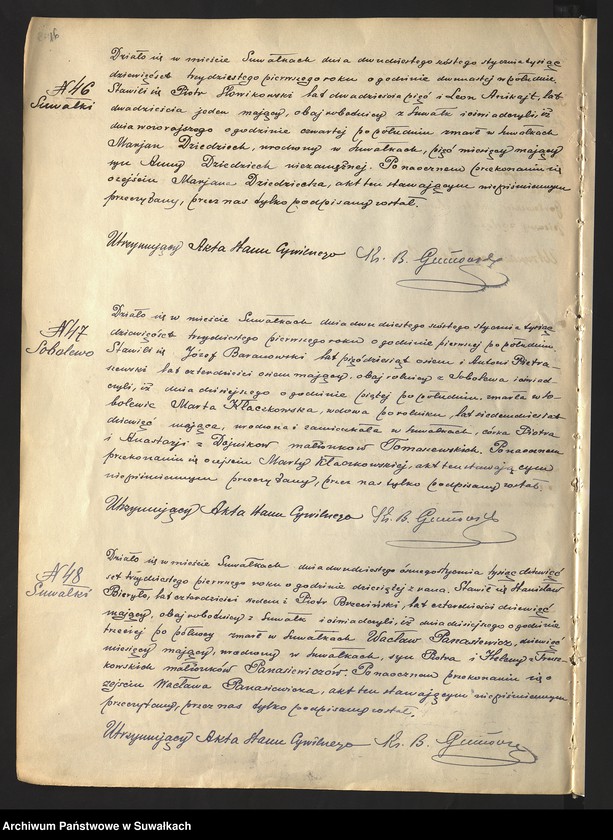 № 46
Suwałki
Działo się w mieście Suwałkach dnia dwudziestego szóstego stycznia tysiąc
dziewięćset trzydziestego pierwszego roku o godzinie dwunastej w południe.
Stawili się Piotr Słowikowski lat dwadzieścia pięć i Leon Anikajt, lat
dwadzieścia jeden mający, obaj robotnicy z Suwałk i oświadczyli, iż
dnia wczorajszego o godzinie czwartej po południu zmarł w Suwałkach
Marjan Dziedziech, urodzony w Suwałkach, pięć miesięcy mający
syn Anny Dziedziech niezamężnej. Po naocznem przekonaniu się
o zejściu Marjana Dziedziecha, akt ten stawającym niepiśmiennym
przeczytany, przez nas tylko podpisany został.
Utrzymujący Akta Stanu Cywilnego Ks. B.
№ 47
Sobolewo
Działo się w mieście Suwałkach dnia dwudziestego szóstego stycznia tysiąc
dziewięćset trzydziestego pierwszego roku o godzinie pierwszej po południu.
Stawili się Józef Baranowski lat pięćdziesiąt osiem i Antoni Pietra-
szewski lat czterdzieści osiem mający, obaj rolnicy z Sobolewa i oświad-
czyli, iż dnia dzisiejszego o godzinie piątej po południu, zmarła w So-
bolewie Marta Kłaczkowska, wdowa po rolniku, lat siedemdziesiąt
dziewięć mająca, urodzona i zamieszkała w Suwałkach, córka Piotra
i Anastazji z Dójników małżonków Tomaszewskich. Po naocznem
przekonaniu się o zejściu Marty Kłaczkowskiej, akt ten stawającym
niepiśmiennym przeczytany, przez nas tylko podpisany został.
Utrzymujący Akta Stanu Cywilnego Ks. B.
№ 48
Suwałki
Działo się w mieście Suwałkach dnia dwudziestego ósmego stycznia tysiąc dziewięć
set trzydziestego pierwszego roku o godzinie dziesiątej z rana. Stawili się Stanisław
Bieryło, lat czterdzieści siedem i Piotr Brzeziński, lat czterdzieści dziewięć
mający, obaj robotnicy z Suwałk i oświadczyli, iż dnia dzisiejszego o godzinie
trzeciej po północy zmarł w Suwałkach Wacław Panasiewicz, dziewięć
miesięcy mający, urodzony w Suwałkach, syn Piotra i Heleny
kowskich małżonków Panasiewiczów. Po naocznem przekonaniu się o
zejściu Wacława Panasiewicza, akt ten stawającym niepiśmiennym
przeczytany, przez nas tylko podpisany został.
Utrzymujący Akta Stanu Cywilnego Ks. B.
Archiwum Państwowe w Suwałkach